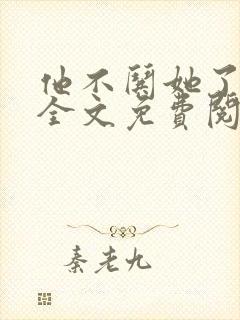 他不闹她了
全文免费阅
秦老九